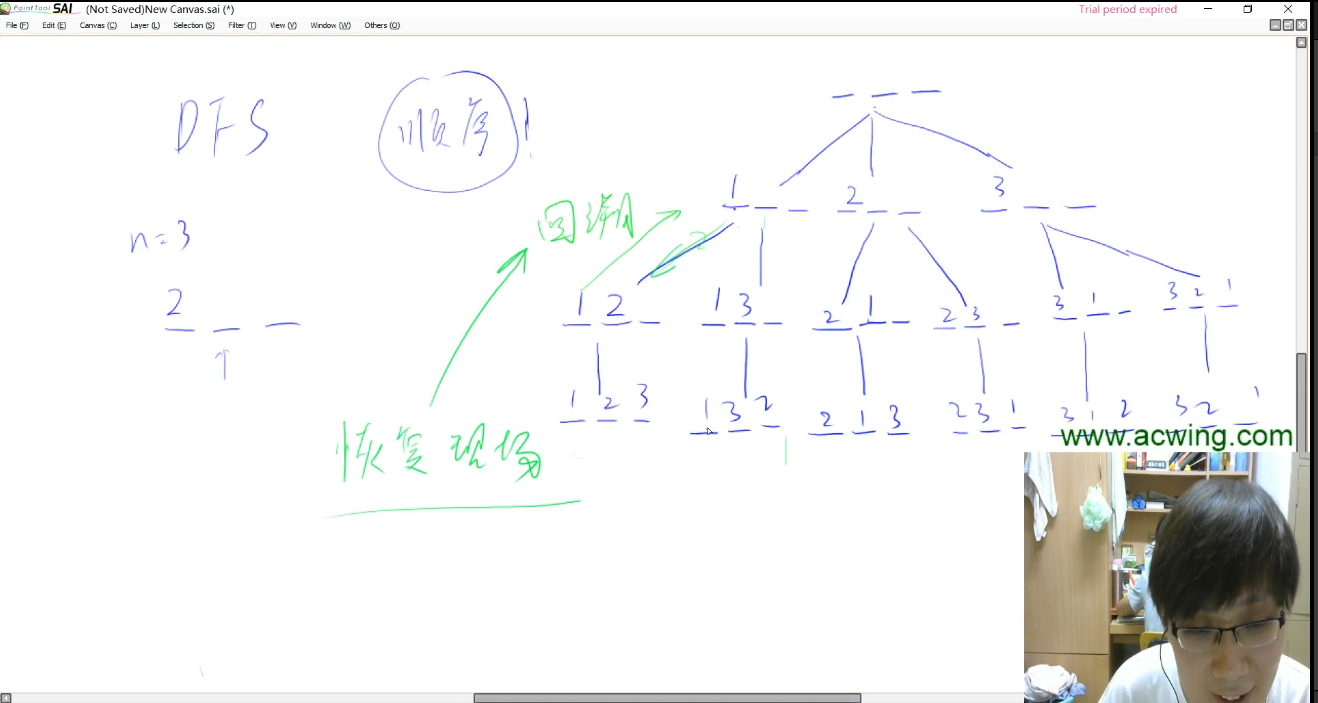 PaintTool SAI (Not Saved)New Canvas.sai (*)
Trial period expired
File (F) Edit (E) Canvas (C) Layer (L) Selection (S) Filter (T) View (V) Window (W) Others (O)
DFS
顺序!
n=3
2
回溯
恢复现场
1 2 3
2
1 2 1 3 2 1 2 3 3 1 3 2 1
1 2 3 1 3 2 2 1 3 2 3 1 3 1 2 3 2 1
www.acwing.com